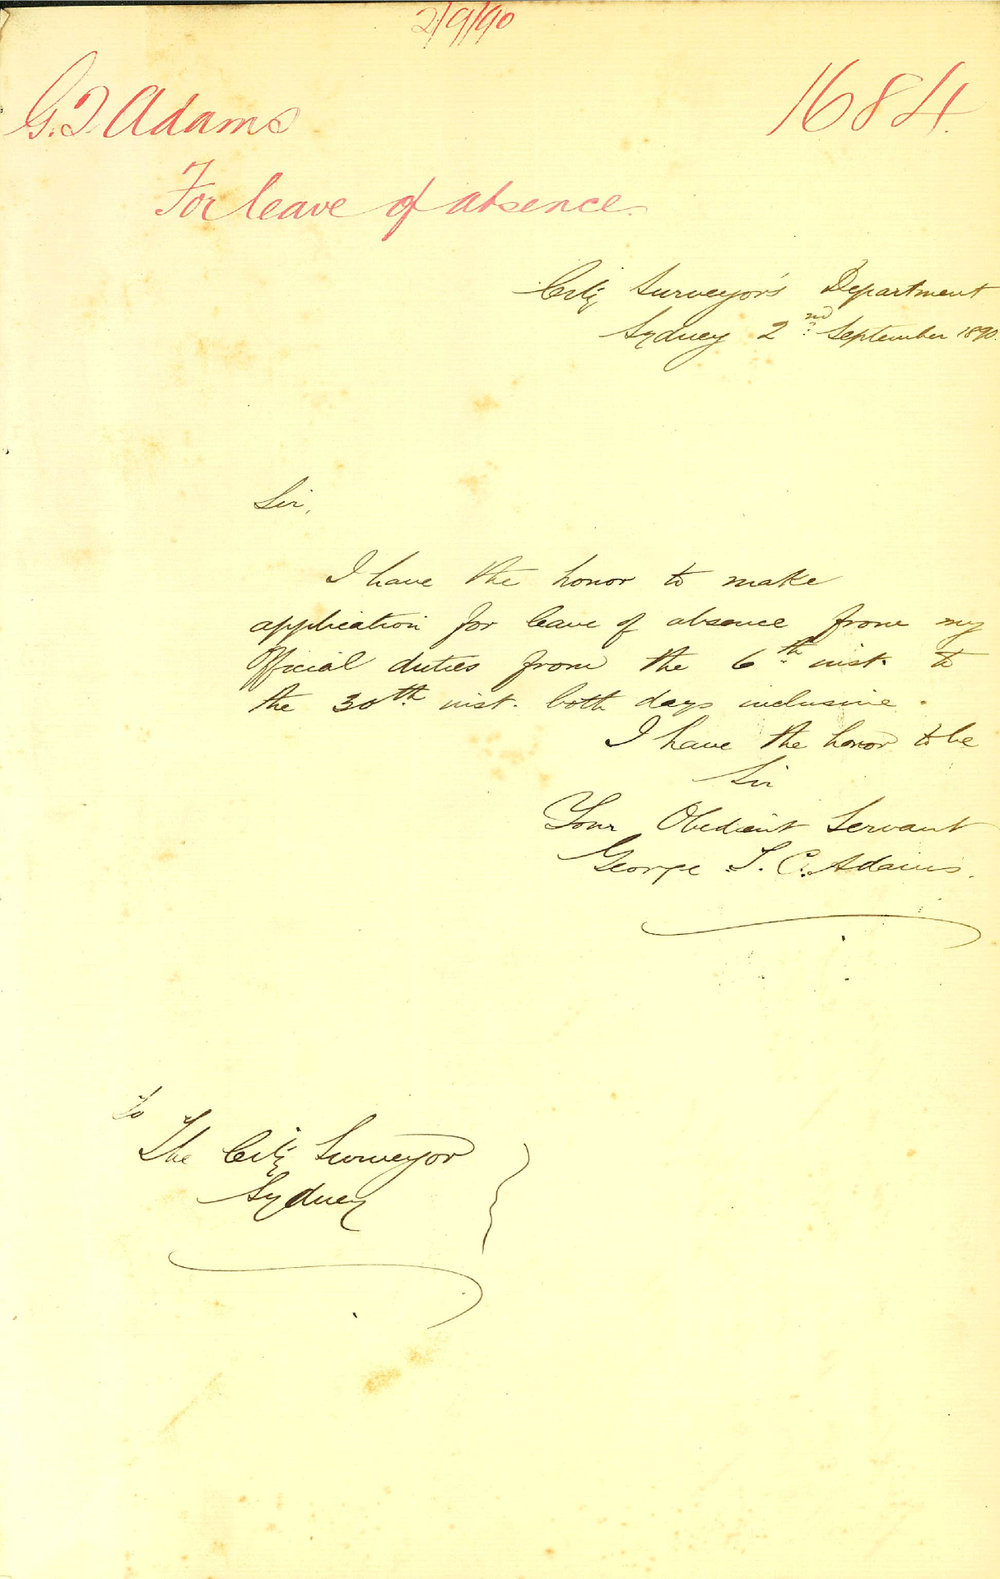 2/9/90
G.T. Adams
1684.
For leave of absence.
City Surveyor's Department
Sydney 2nd September 1890.
Sir,
I have the honor to make
application for leave of absence from my
Official duties from the 6th inst. to
the 30th inst. both days inclusive.
I have the honor to be
Sir
Your Obedient Servant
George T. C. Adams.
To
The City Surveyor
Sydney